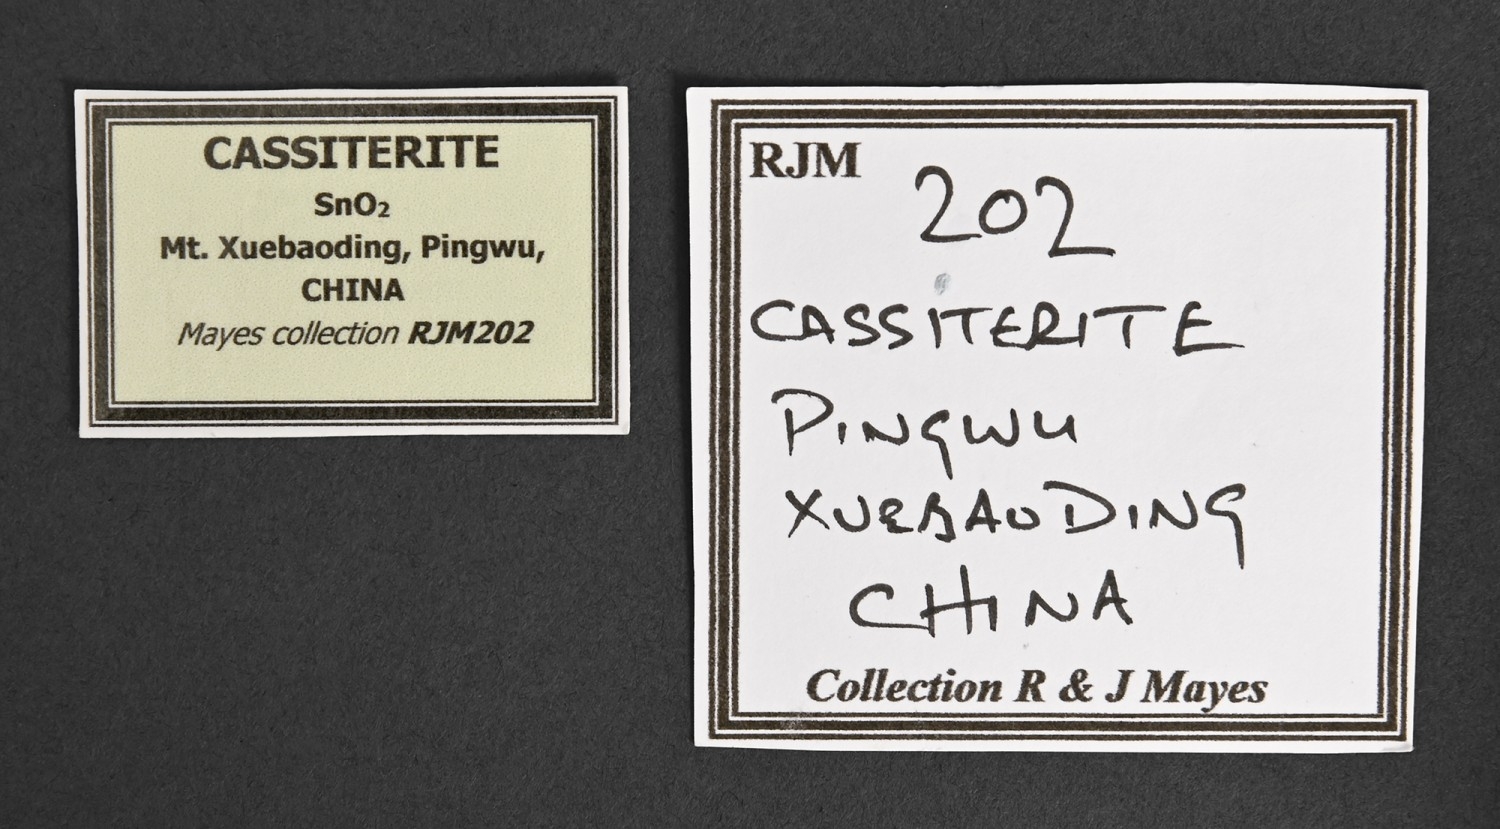 CASSITERITE
SnO₂
Mt. Xuebaoding, Pingwu,
CHINA
Mayes collection RJM202
RJM 202
CASSITERITE
PINGWU
XUEBAODING
CHINA
Collection R & J Mayes